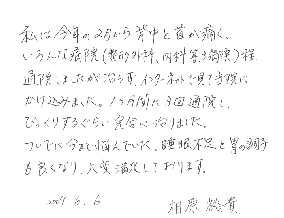 私は今年の2月から背中と首が痛く、
いろんな病院(整形外科、内科等3病院)程
通院しましたが治らず、インターネットで見て当院に
かけ込みました。1ヶ月間に3回通院し、
びっくりするぐらい完全に治りました。
ついでに今まで悩んでいた、睡眠不足と胃の調子
も良くなり、大変満足しております。
2009. 6. 6
相原